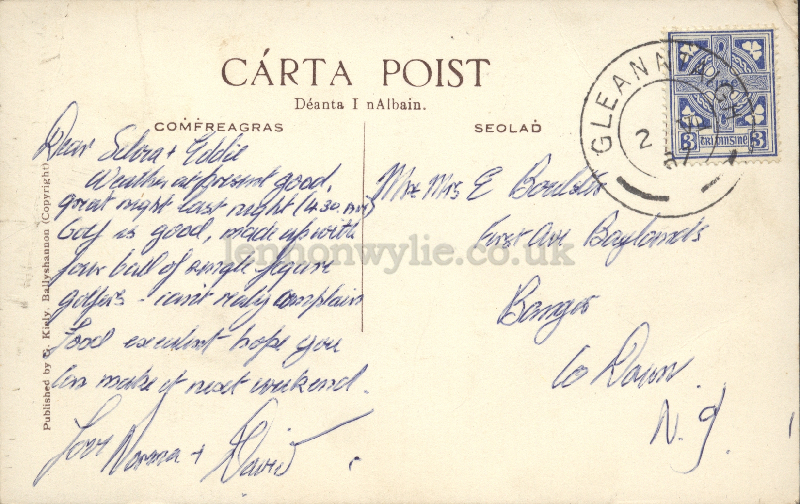 CÁRTA POIST
Déanta I nAlbain.
COṀḞREAGRAS
SEOLAḊ
Dear Selora + Eddie
Weather at present good,
great night last night (4.30. AM)
Golf is good, made up with
four ball of single figure
golfers - can't really complain
Food excelent hope you
can make it next weekend.
Love Norma + David
Mr & Mrs E Boulster
First Ave Baylands
Bangor
Co Down
N.I.
GLEANN
2
3 TRÍ PINSINE 3
Published by Kiely, Ballyshannon (Copyright)
lennonwylie.co.uk